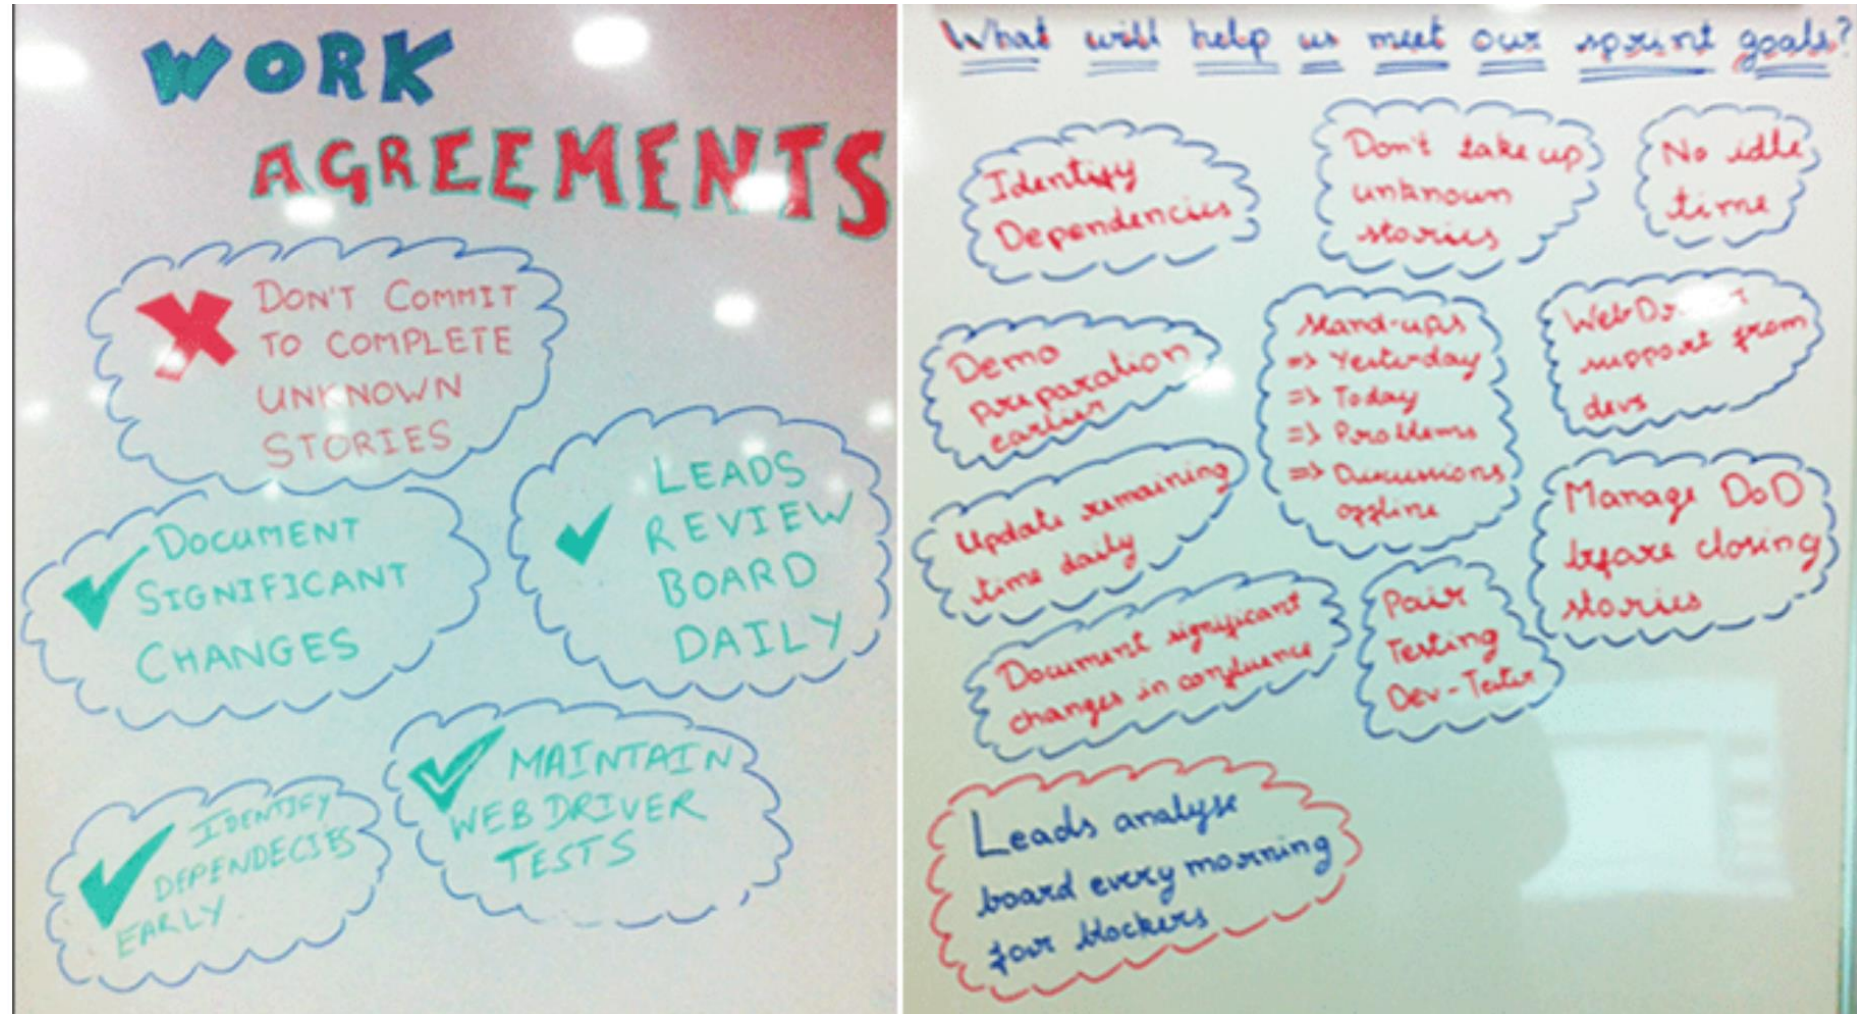 WORK
AGREEMENTS
DON'T COMMIT
TO COMPLETE
UNKNOWN
STORIES
LEADS
REVIEW
BOARD
DAILY
DOCUMENT
SIGNIFICANT
CHANGES
MAINTAIN
WEB DRIVER
TESTS
IDENTIFY
DEPENDECIES
EARLY
What will help us meet our sprint goals?
Identify
Dependencies
Don't take up
unknown
stories
No idle
time
Demo
preparation
earlier
Stand-ups
=> Yesterday
=> Today
=> Problems
=> Discussions
offline
support from
devs
Update remaining
time daily
Manage DoD
before closing
stories
Document significant
changes in confluence
Pair
Testing
Dev-Tester
Leads analyse
board every morning
for blockers